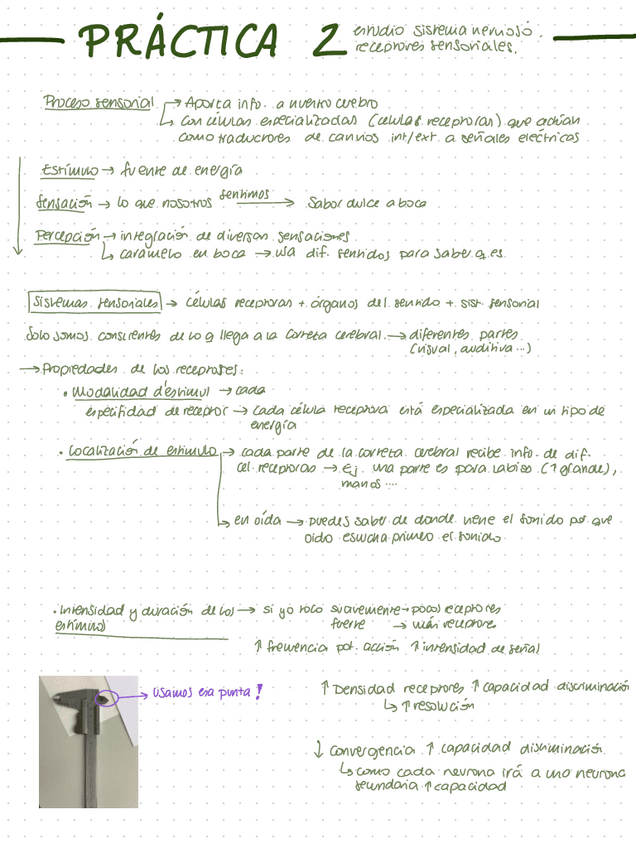 PRÁCTICA 2 estudio sistema nervioso.
receptores sensoriales.
Proceso sensorial → Aporta info. a nuestro cerebro
↳ con células especializadas (células receptoras) que actúan
como traductores de canvios int/ext. a señales eléctricas
Estímulo → fuente de energía
Sensación → lo que nosotros sentimos → Sabor dulce a boca
Percepción → integración de diversas sensaciones
↳ caramelo en boca → usa dif. sentidos para saber q es.
Sistemas sensoriales → células receptoras + órganos del sentido + sist. sensorial
Solo somos conscientes de lo q llega a la corteza cerebral. → diferentes partes
(visual, auditiva...)
→ Propiedades de los receptores:
• Modalidad d'estímul → cada
especifidad de receptor → cada célula receptora está especializada en un tipo de
energía
• Localización de estímulo → cada parte de la corteza cerebral recibe info. de dif.
cel. receptoras → Ej. una parte es para labios (↑ grande),
manos....
↳ en oída → puedes saber de donde viene el sonido por que
oído escucha primero el sonido.
• Intensidad y duración de los → si yo toco suavemente → pocos receptores
estímulos fuerte → más receptores
↑ frecuencia pot. acción ↑ intensidad de señal
→ usamos esa punta!
↑ Densidad receptores ↑ capacidad discriminación
↳ ↑ resolución
↓ Convergencia ↑ capacidad discriminación.
↳ como cada neurona irá a una neurona
secundaria ↑ capacidad